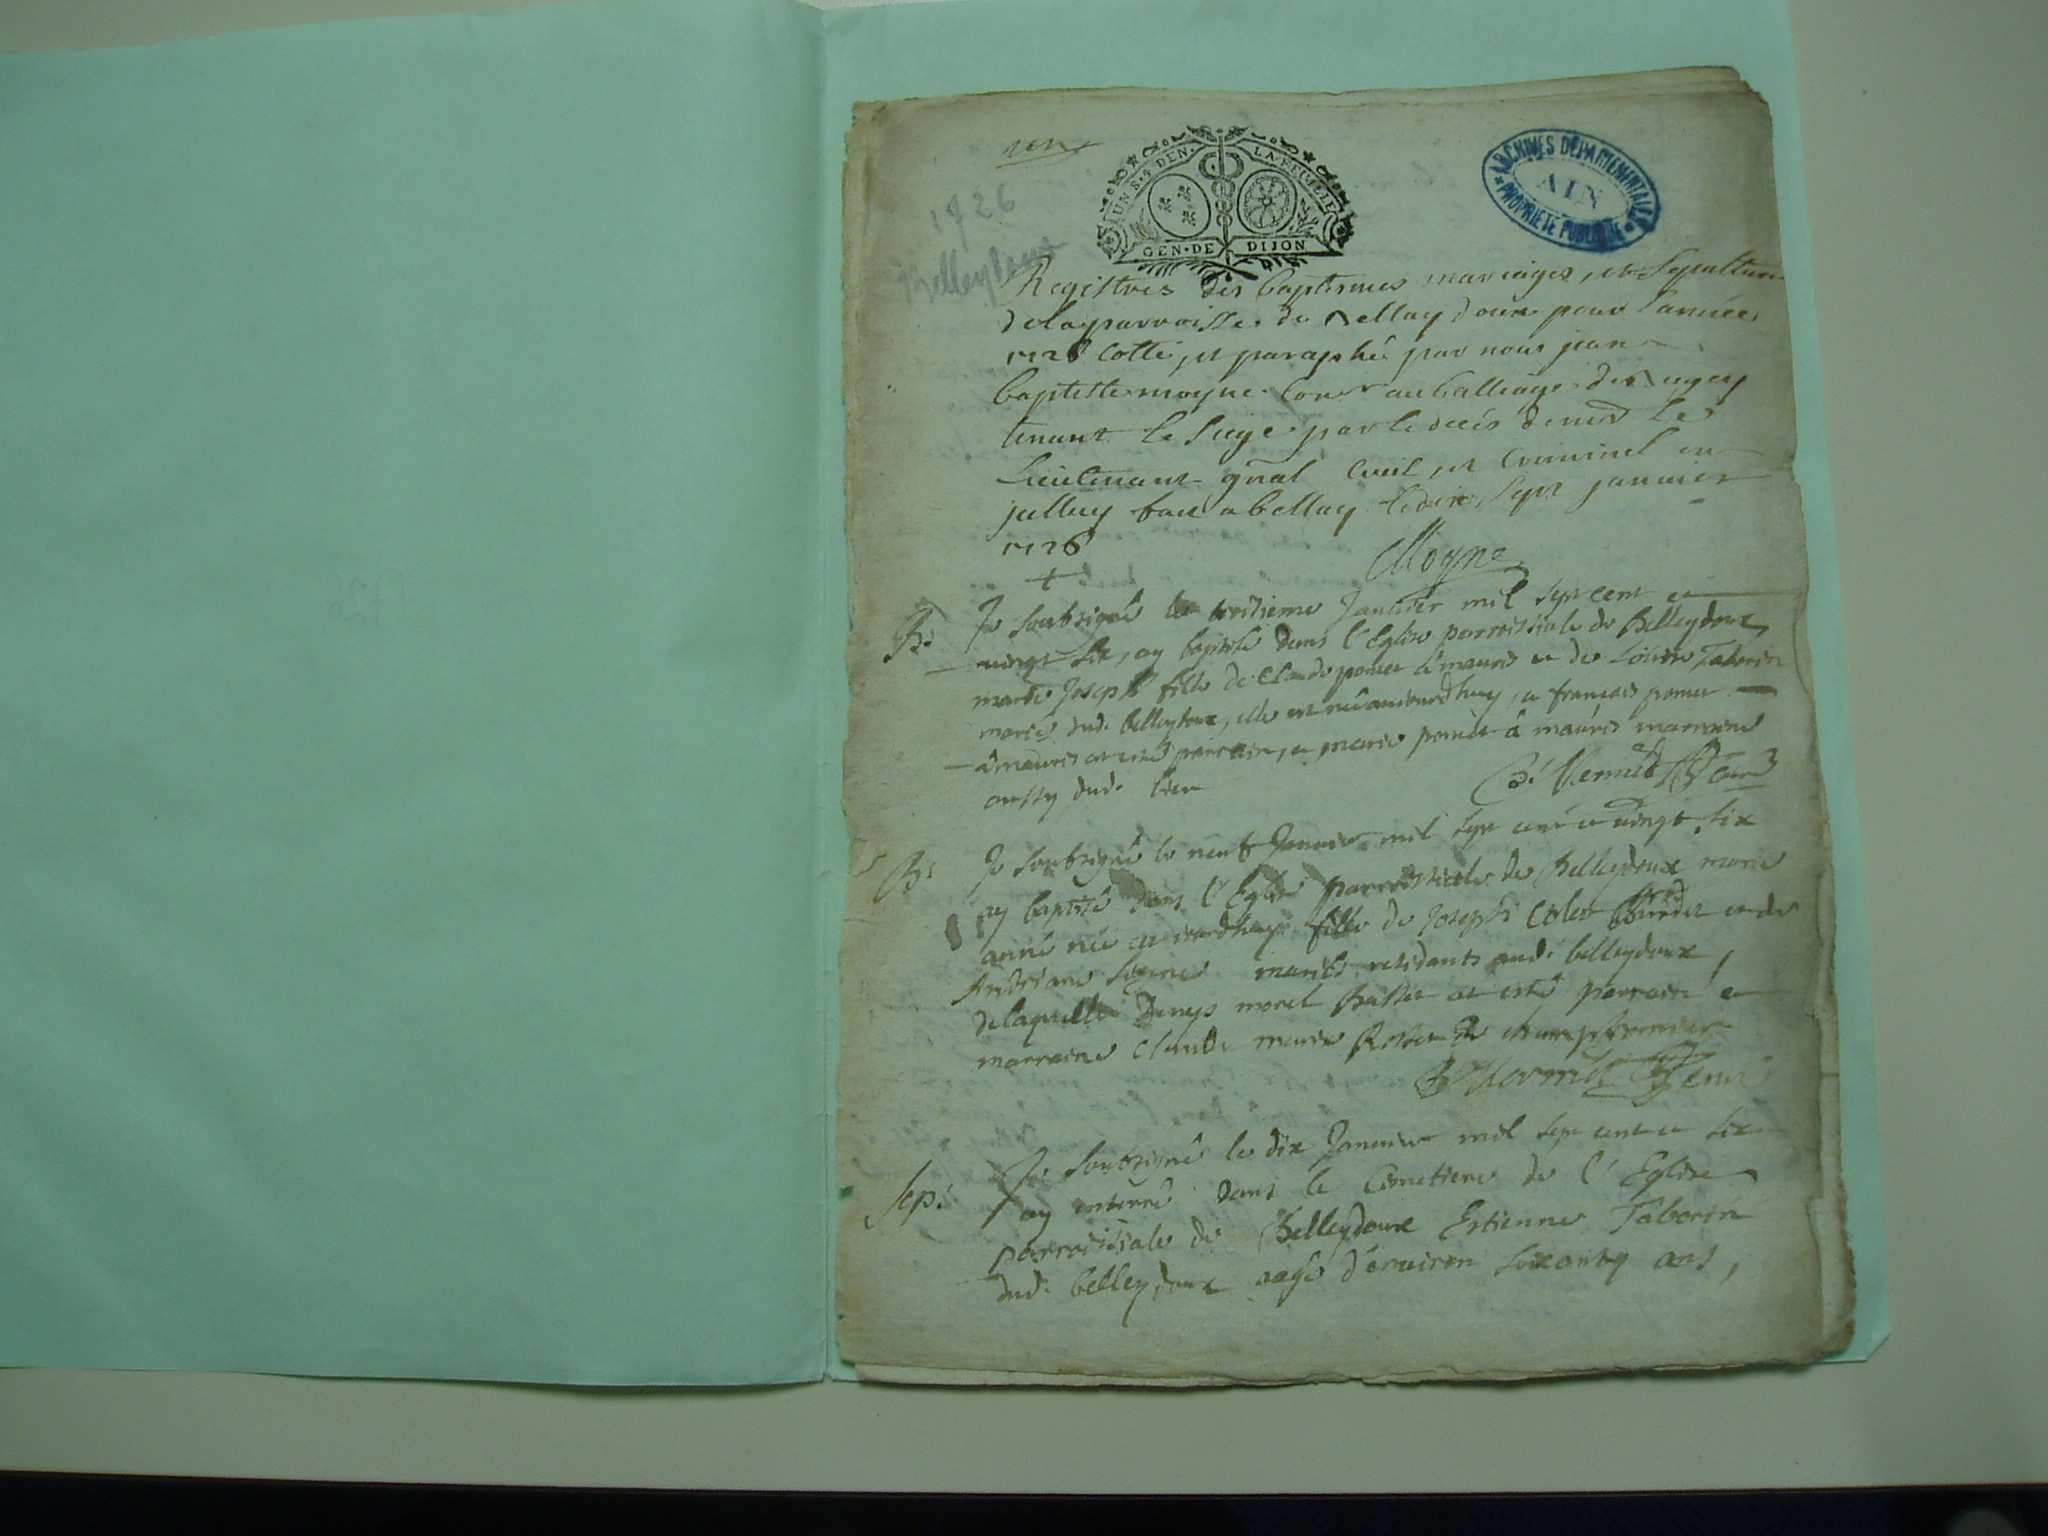 UN S. 4 DEN. LA FEUILLE
GEN. DE DIJON
ARCHIVES DEPARTEMENTALES
AIN
PROPRIETE PUBLIQUE
1726
Belleydoux
Registres des baptesmes mariages, et Sepultures
de la parroisse de Bellaydoux pour l'année
1726 Cotté, et paraphé par nous jean
baptiste moyne Conr au balliage de Bugey
tenant le Siege par le décés de
Lieutenant gnal Civil, et Criminel en
jcelluy fait a belley le dix Sept janvier
1726
Moyne
B:
Je soubsigné le troisieme Janvier mil sept cent et
vingt six, ay baptisé dans l'Eglise parroissiale de Belleydoux
marie Joseph fille de Claude poncet à mauris et de Taborin
mariés dud. belleydoux, elle est née aujourdhuy, et francois poncet
à mauris at esté parrain, et marie poncet à mauris marraine
aussy dud. lieu
B:
Je soubsigné le neuf Janvier mil sept cent et vingt six
ay baptisé dans l'Eglise parroissiale de Belleydoux marie
anne née aujourdhuy fille de Joseph et de
mariés residants aud. belleydoux,
de laquelle Denys morel at esté parrain et
marraine Claude marie Rosset de champfromier
Sep:
Je soubsigné le dix Janvier mil sept cent et six
ay enterré dans le Cimetiere de l'Eglise
parroissiale de Belleydoux Estienne Taborin
dud. belleydoux aagé d'énviron soixante ans,